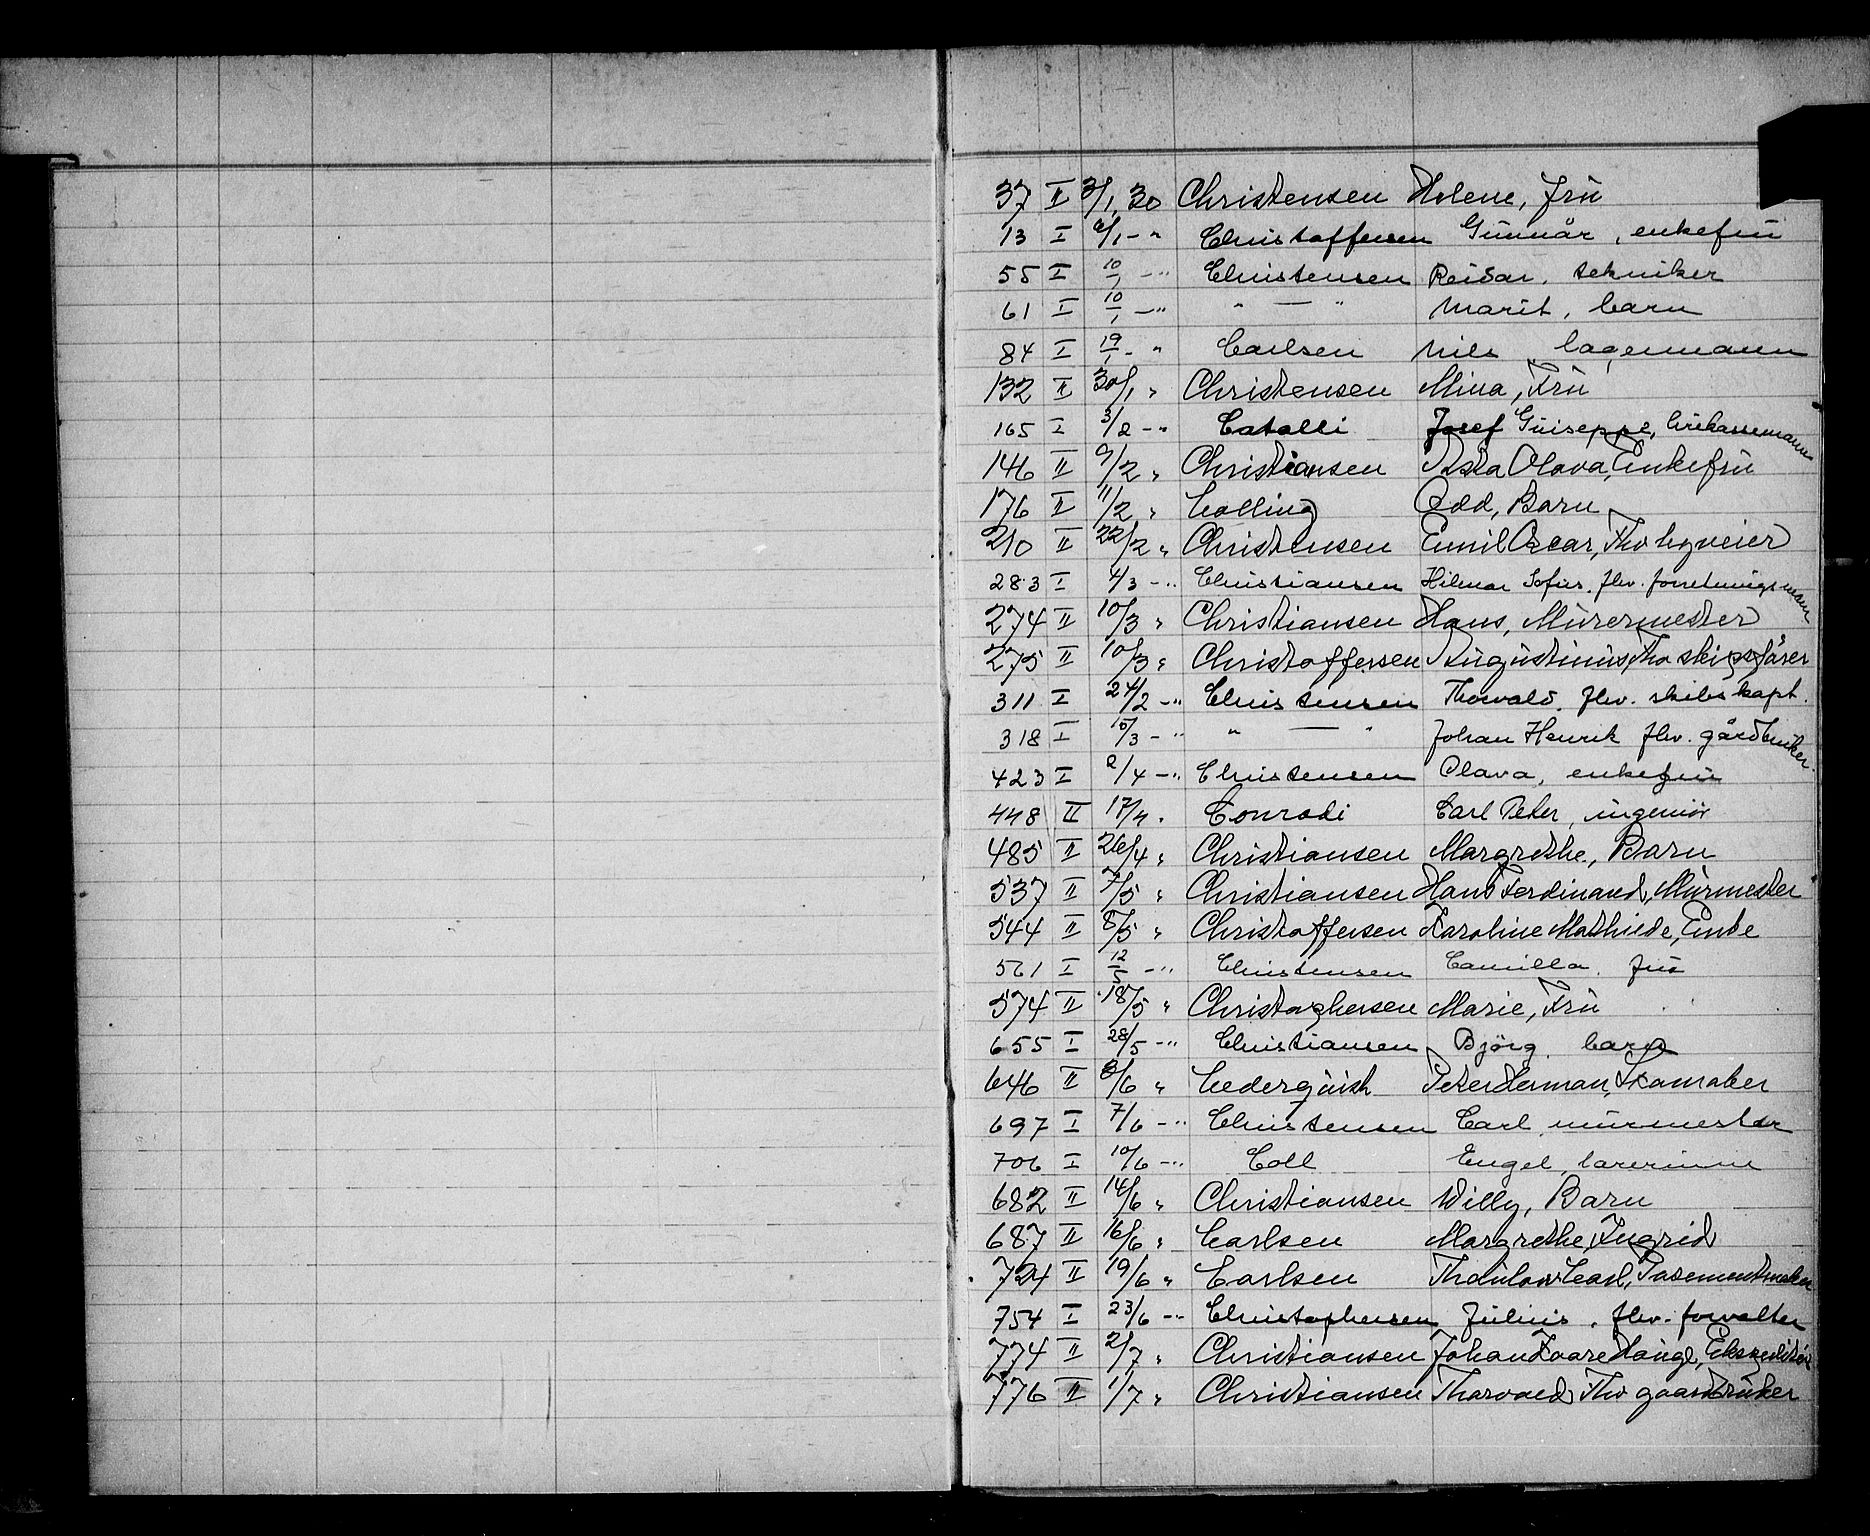 37 II 3/1, 30 Christensen Helene, Frü
13 I 6/1 - " Christoffersen Günnår, enkefrü
55 I 10/1 - " Christensen Reidar, tekniker
61 I 10/1 - " " — " Marit, barn
84 I 19/1 - " Carlsen Nils lagermann
132 II 30/1 " Christensen Mina, Frü
165 I 3/2 - " Catalli Josef Güiseppe, lirekassemann
146 II 9/2 " Christiansen Asta Olava, Enkefrü
176 II 11/2 " Colling Odd, Barn
210 II 22/2 " Christensen Emil Oscar, Fhv
283 I 4/3 - " Christiansen Hilmar Sofus. fhv. forretningsmann
274 II 10/3 " Christiansen Hans, Mürermester
275 II 10/3 " Christoffersen Augustinus, Fhv skipsförer
311 I 24/2 - " Christensen Thorvald. fhv. skibskapt.
318 I 15/3 - " " — " Johan Henrik fhv. gårdbruker.
423 I 2/4 - " Christensen Olava, enkefrü
448 II 17/4 " Conradi Carl Peter, ingeniör
485 II 26/4 " Christiansen Margrethe, Barn
537 II 7/5 " Christiansen Hans Ferdinand, Mürmester
544 II 8/5 " Christoffersen Karoline Mathilde, Enke
561 I 12/5 - " Christensen Camilla. frü
574 II 18/5 " Christophersen Marie, Frü
655 I 28/5 - " Christiansen Björg. barn
646 II 3/6 " Cederqüist Peter Herman, Skomaker
697 I 7/6 - " Christensen Carl, mürmester
706 I 10/6 - " Coll Engel, lærerinne
682 II 14/6 " Christiansen Willy, Barn
687 II 16/6 " Carlsen Margrethe, Ingrid
724 II 19/6 " Carlsen Carl, Pasementmaker
754 I 23/6 - " Christophersen Jülius, fhv. forvalter
774 II 2/7 " Christiansen Johan Kaare Haüge, Ekspeditör
776 II 1/7 " Christiansen Thorvald, Fhv gaardbrüker